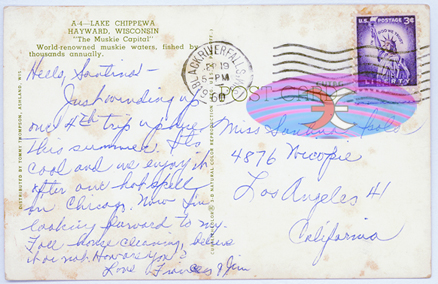 A-4-LAKE CHIPPEWA
HAYWARD, WISCONSIN
"The Muskie Capital"
World-renowned muskie waters, fished by
thousands annually.
Hello, Santina -
Just winding up
our 4th trip up here
this summer. It's
cool and we enjoy it
after our hot spell
in Chicago. Now I'm
looking forward to my
Fall house cleaning, believe
it or not. How are you?
Love Frances & Jim
DISTRIBUTED BY TOMMY THOMPSON, ASHLAND, WIS.
NATURAL COLOR REPRODUCTION
BLACK RIVER FALLS
19
5-PM
1960
POST CARD
U.S. POSTAGE 3¢
IN GOD WE TRUST
LIBERTY
Miss
4876
Los Angeles 41
California